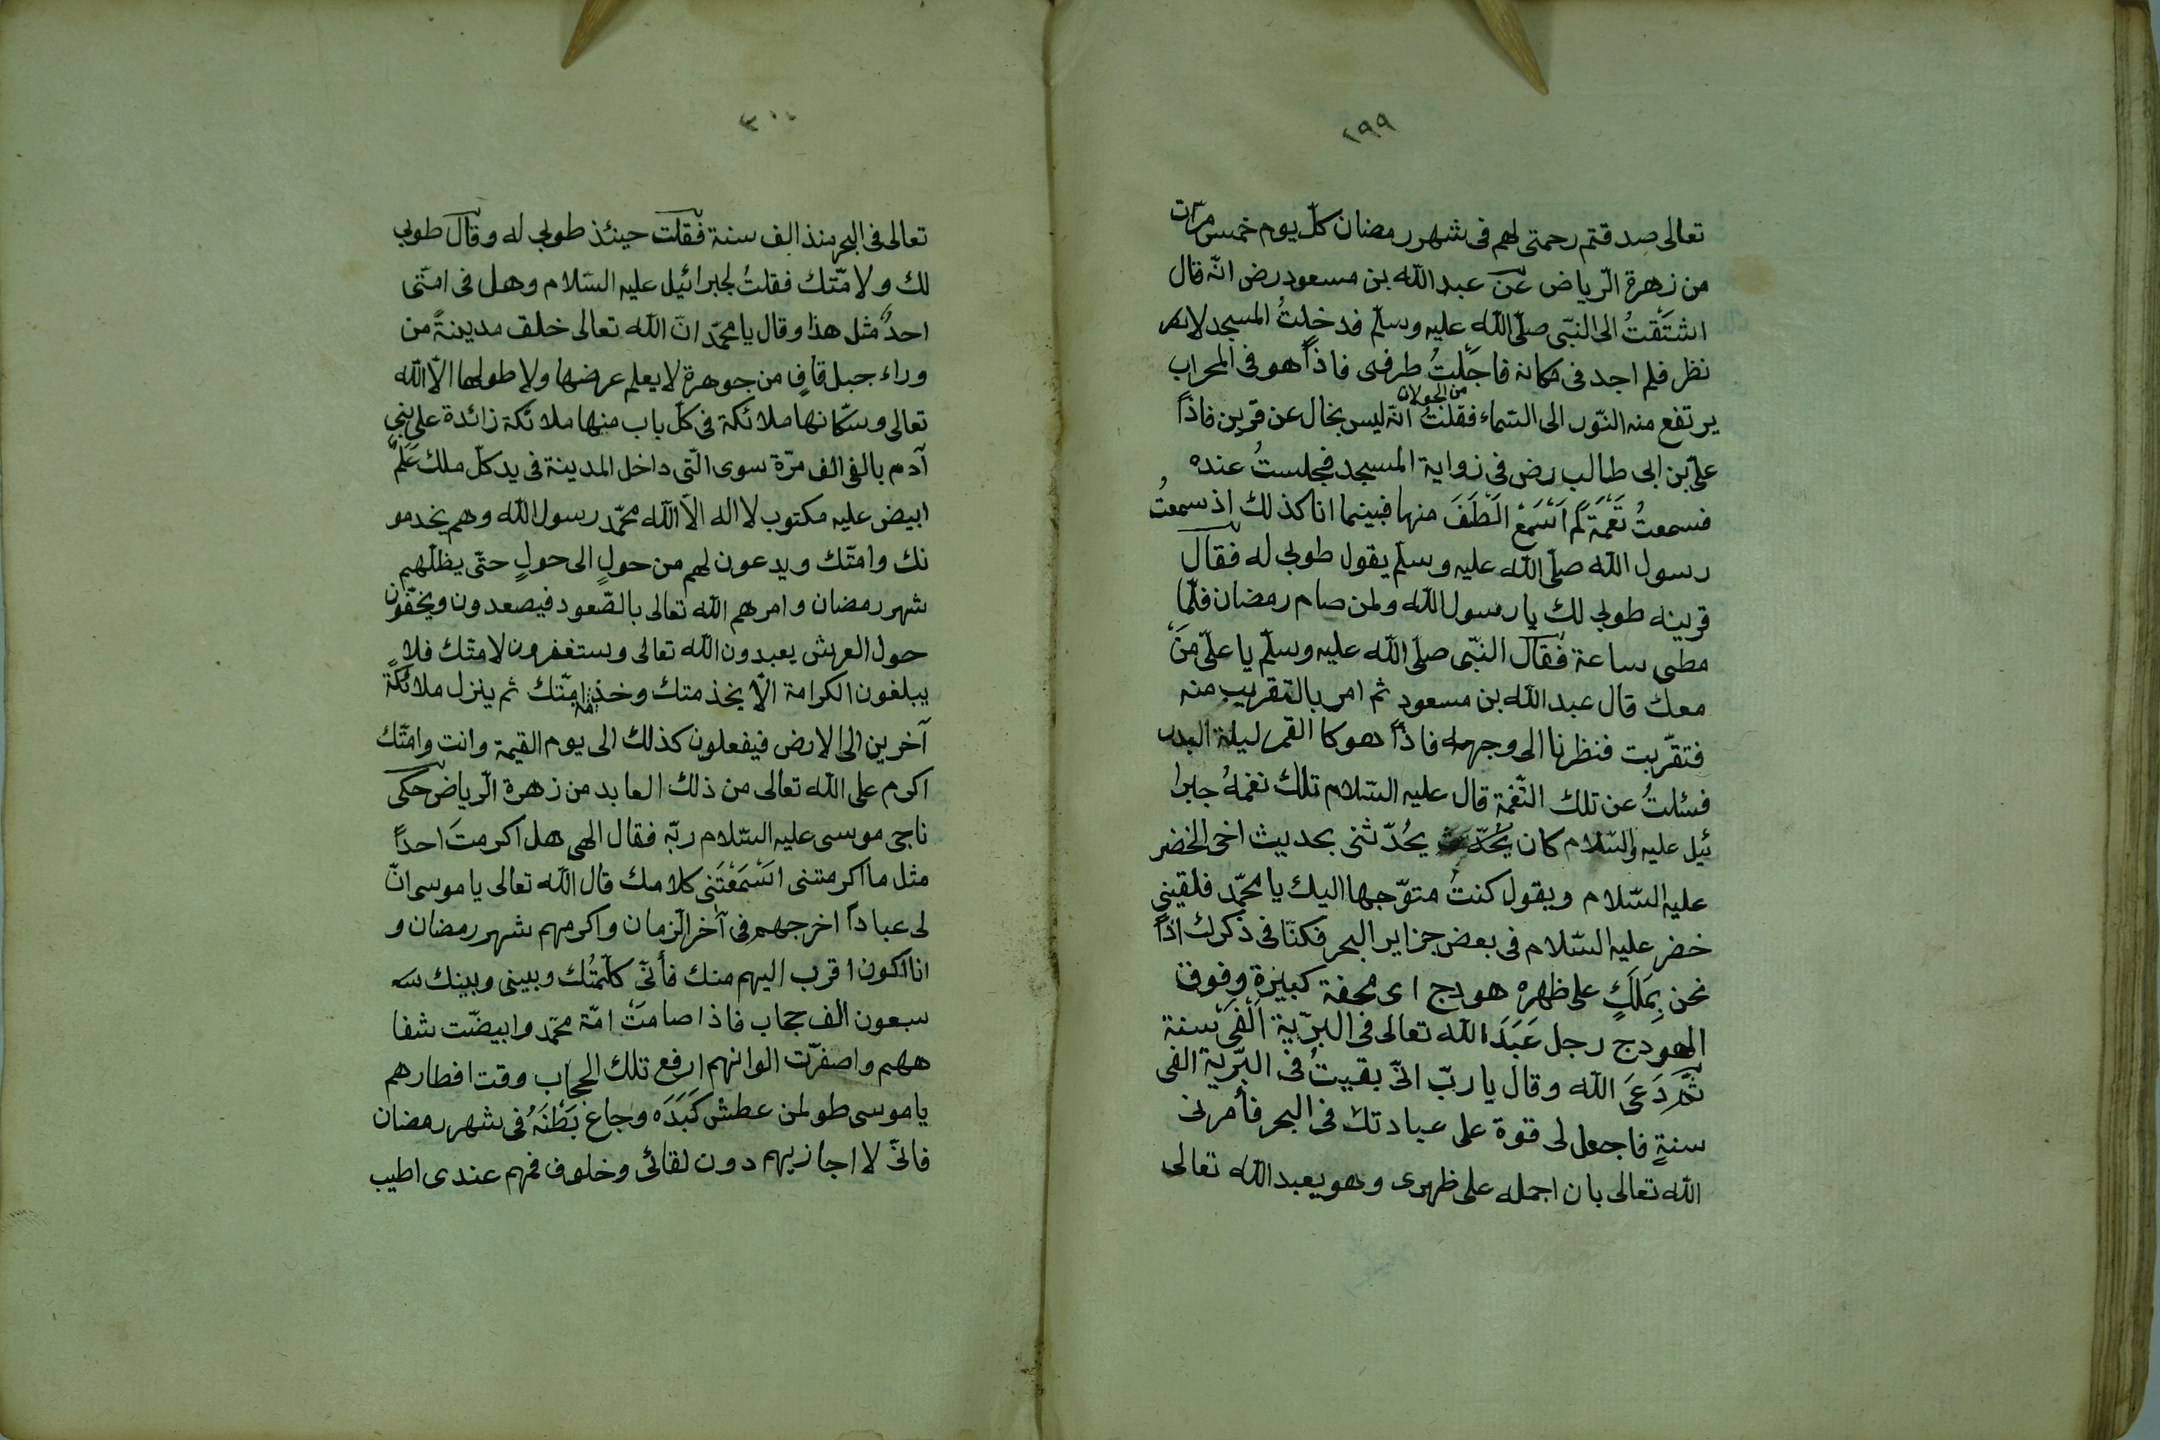 ١٩٩
تعالى صدقتم رحمتى لهم فى شهر رمضان كلّ يوم خمس مرّات
من زهرة الرّياض عن عبد اللّه بن مسعود رض انّه قال
اشتَقتُ الى النّبى صلّى اللّه عليه وسلّم فدخلتُ المسجد لا
نظر فلم اجد فى مكانه فاجَلتُ طرفى فاذاً هو فى المحراب
من الجولان
يرتفع منه النّور الى السّماء فقلتُ انّه ليس بخال عن قرين فاذاً
علىّ بن ابى طالب رض فى زواية المسجد فجلستُ عنده
فسمعتُ نَغْمَةً لَم اَسْمَعْ اَلْطَفَ منها فبينما انا كذلك اذ سمعتُ
رسول اللّه صلّى اللّه عليه وسلّم يقول طوبى له فقال
قرينه طوبى لك يا رسول اللّه ولمن صام رمضان فلمّا
مطى ساعة فقال النّبى صلّى اللّه عليه وسلّم يا علىّ مَنْ
معك قال عبد اللّه بن مسعود ثم امر بالتقريب منه
فتقرّبت فنظرنا الى وجهه فاذاً هو كا القمر ليلة البدر
فسئلتُ عن تلك النّغمة قال عليه السّلام تلك نغمةُ جبرا
ئيل عليه والسّلام كان يحدّثنى بحديث اخى الخضر
عليه السّلام ويقول كنتُ متوّجها اليك يا محمّد فلقينى
خضر عليه السّلام فى بعض جزاير البحر فكنّا فى ذكرك اذاً
نحن بِمَلَكٍ على ظهره هودج اى محفة كبيرة وفوق
الهودج رجل عَبَدَ اللّه تعالى فى البرّية اَلْفَىْ سنة
ثمّ دَعَىَ اللّه وقال يا ربّ انّى بقيتُ فى البرّية الفى
سنةٍ فاجعل لى قوة على عبادتك فى البحر فأمرنى
اللّه تعالى بان احمله على ظهرى وهو يعبد اللّه تعالى
٢٠٠
تعالى فى البحر منذ الف سنة فقلت حينئذ طوبى له وقال طوبى
لك ولامّتك فقلتُ لجبرائيل عليه السّلام وهل فى امّتى
احدٌ مثل هذا وقال يا محمّد انّ اللّه تعالى خلق مدينةً من
وراء جبل قافٍ من جوهرة لا يعلم عرضها ولا طولها الّا اللّه
تعالى وسكّانها ملائكة فى كلّ باب منها ملائكة زائدة على بنى
آدم بالفى الف مرّة سوى الّتى داخل المدينة فى يد كلّ ملك عَلَمٌ
ابيض عليه مكتوب لا اله الّا اللّه محمّد رسول اللّه وهم يخدمو
نك وامتك ويدعون لهم من حولٍ الى حولٍ حتّى يظلّهم
شهر رمضان وامرهم اللّه تعالى بالصّعود فيصعدون ويحفّون
حول العرش يعبدون اللّه تعالى وستغفرون لامتك فلا
يبلغون الكرامة الّا بخذمتك وخذمة امّتك ثم ينزل ملائكةً
آخرين الى الارض فيفعلون كذلك الى يوم القيمة وانت وامّتك
اكرم على اللّه تعالى من ذلك العابد من زهرة الرّياض حكى
ناجى موسى عليه السّلام ربّه فقال الهى هل اكرمتَ احداً
مثل ما اكرمتنى اَسْمَعْتَنى كلامك قال اللّه تعالى يا موسى انّ
لى عباداً اخرجهم فى آخر الزمان واكرمهم شهر رمضان و
انا اكون اقرب اليهم منك فأنّى كلّمتُك وبينى وبينك
سبعون الف حجاب فاذا صامَتْ امّة محمّد وابيضّت شفا
ههم واصفرّت الوانهم ارفع تلك الحجاب وقت افطارهم
يا موسى طو لمن عطش كَبَدَه وجاع بَطْنَهُ فى شهر رمضان
فانّى لا اجازيهم دون لقائى وخلوف فمهم عندى اطيب